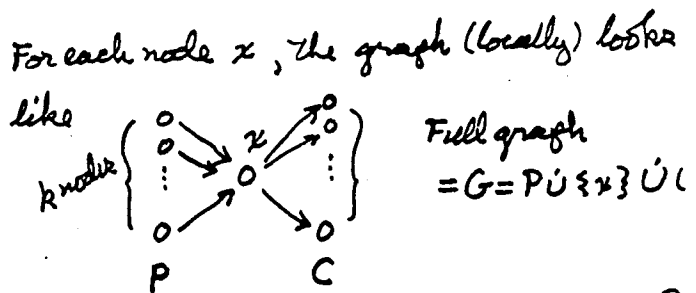 For each node x, the graph (locally) looks
like
x
k nodes
Full graph
= G = P ∪̇ {x} ∪̇ (
P
C